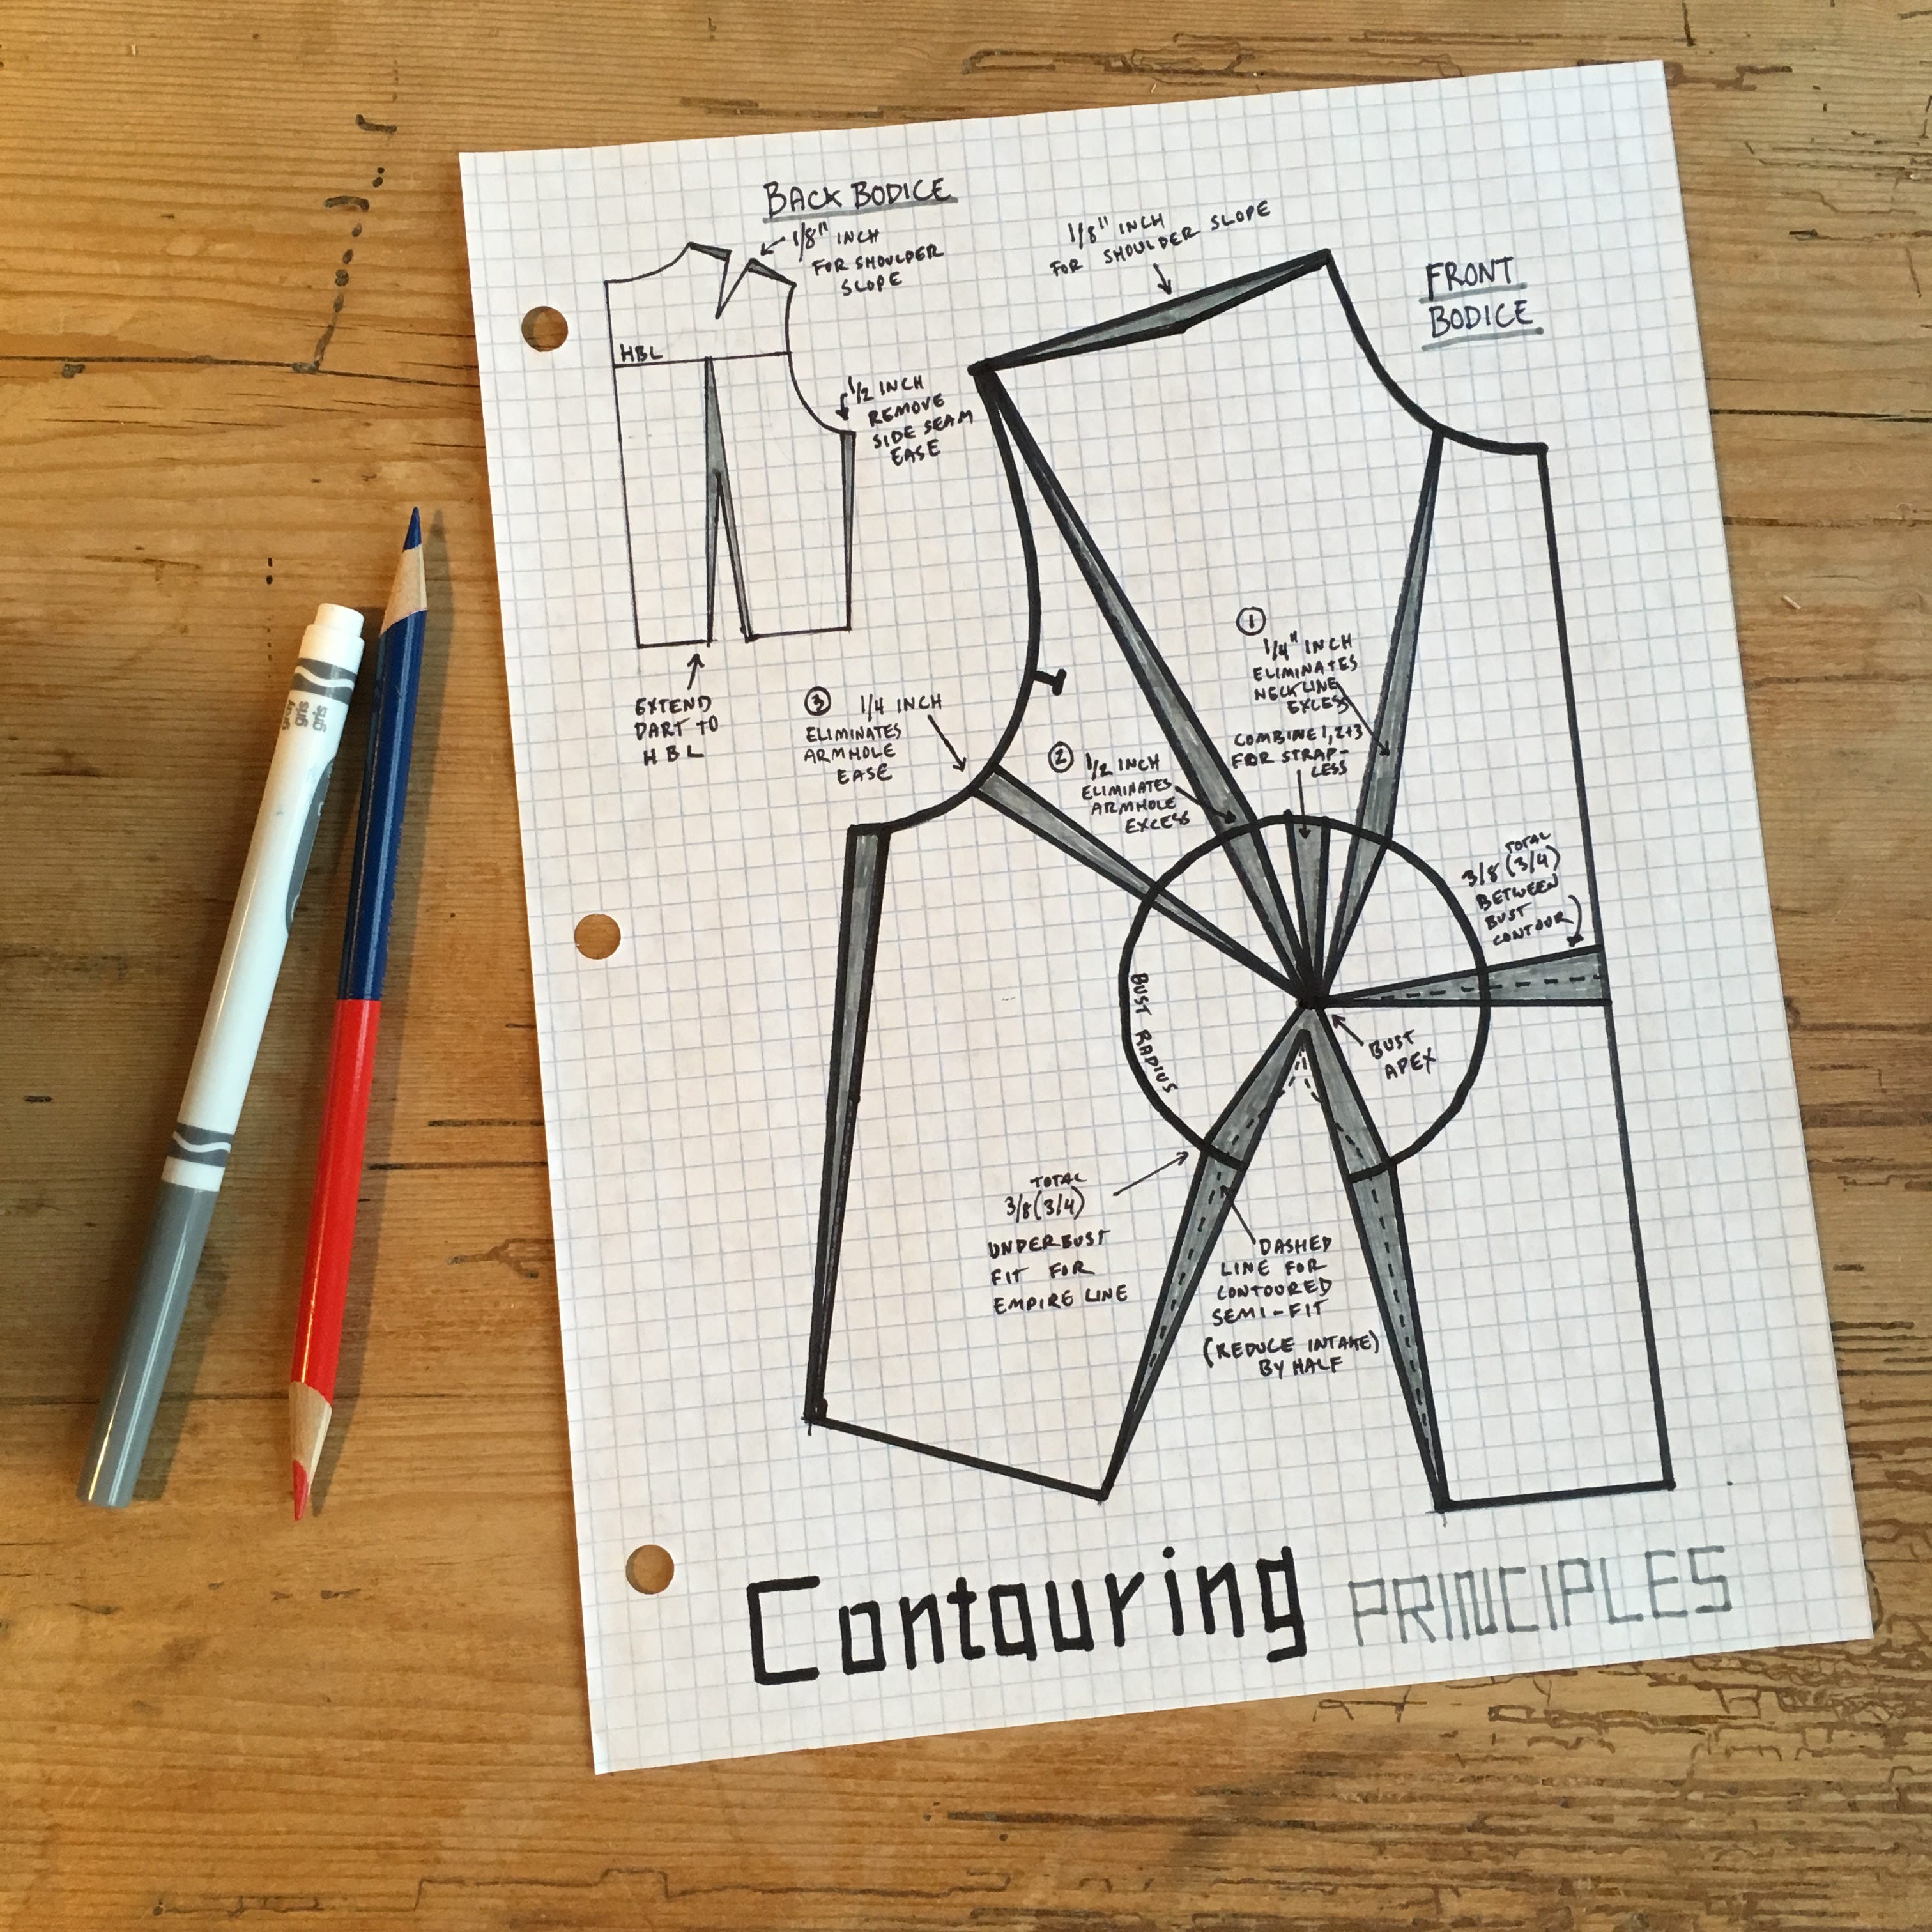 BACK BODICE
1/8" INCH
FOR SHOULDER
SLOPE
HBL
1/2 INCH
REMOVE
SIDE SEAM
EASE
EXTEND
DART TO
HBL
1/8" INCH
FOR SHOULDER SLOPE
FRONT
BODICE
1
1/4" INCH
ELIMINATES
NECKLINE
EXCESS
COMBINE 1, 2+3
FOR STRAP-
LESS
2
1/2 INCH
ELIMINATES
ARMHOLE
EXCESS
3 1/4 INCH
ELIMINATES
ARMHOLE
EASE
TOTAL
3/8 (3/4)
BETWEEN
BUST
CONTOUR
BUST RADIUS
BUST
APEX
TOTAL
3/8 (3/4)
UNDERBUST
FIT FOR
EMPIRE LINE
DASHED
LINE FOR
CONTOURED
SEMI-FIT
(REDUCE INTAKE)
BY HALF
Contouring PRINCIPLES
gray
gris
gris